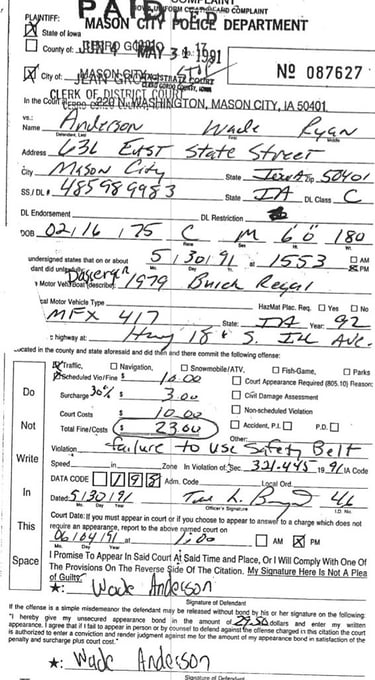 PAID
UNIFORM CITATION AND COMPLAINT
PLAINTIFF: MASON CITY POLICE DEPARTMENT
State of Iowa
County of: CERRO GORDO MAY 31 1991
City of: MASON CITY
Nº 087627
CLERK OF DISTRICT COURT
In the Court 220 N. WASHINGTON, MASON CITY, IA 50401
vs.:
Name Anderson Wade Ryan
Address 631 East State Street
City Mason City State Iowa Zip 50401
SS/DL# 485989983 State IA DL Class C
DL Endorsement DL Restriction
DOB 02/16/75 C M 6'0" 180
undersigned states that on or about 5/30/91 at 1553 AM PM
dant did unlawfully Passenger
Motor Veh/Boat (describe) 1979 Buick Regal
al Motor Vehicle Type HazMat Plac. Req. Yes No
MFX 417 State: IA Year: 92
highway at: Hwy 18 & S. Ill Ave.
located in the county and state aforesaid and did then and there commit the following offense:
Traffic, Navigation, Snowmobile/ATV, Fish-Game, Parks
Scheduled Vio/Fine $ 10.00 Court Appearance Required (805.10) Reason:
Do Surcharge 30% $ 3.00 Civil Damage Assessment
Court Costs $ 10.00 Non-scheduled Violation
Not Total Fine/Costs $ 23.00 Accident, P.I. P.D.
Other:
Violation failure to use Safety Belt
Write Speed in Zone In Violation of: Sec. 321.445 1991 IA Code
DATA CODE Adm. Code Local Ord.
In Dated: 5/30/91
Mo. Day Year Officer's Signature I.D. No.
Court Date: If you must appear in court or if you choose to answer to a charge which does not
This require an appearance, report to the above named court on
06/04/91 at 1:00 AM PM
Mo. Day Year
I Promise To Appear In Said Court At Said Time and Place, Or I Will Comply With One Of
Space The Provisions On The Reverse Side Of The Citation. My Signature Here Is Not A Plea
of Guilty.
★: Wade Anderson
Signature of Defendant
If the offense is a simple misdemeanor the defendant may be released without bond by his or her signature on the following:
"I hereby give my unsecured appearance bond in the amount of 29.50 dollars and enter my written
appearance. I agree that if I fail to appear in person or by counsel to defend against the offense charged in this citation the court
is authorized to enter a conviction and render judgment against me for the amount of my appearance bond in satisfaction of the
penalty and surcharge plus court cost."
★: Wade Anderson
Signature of Defendant